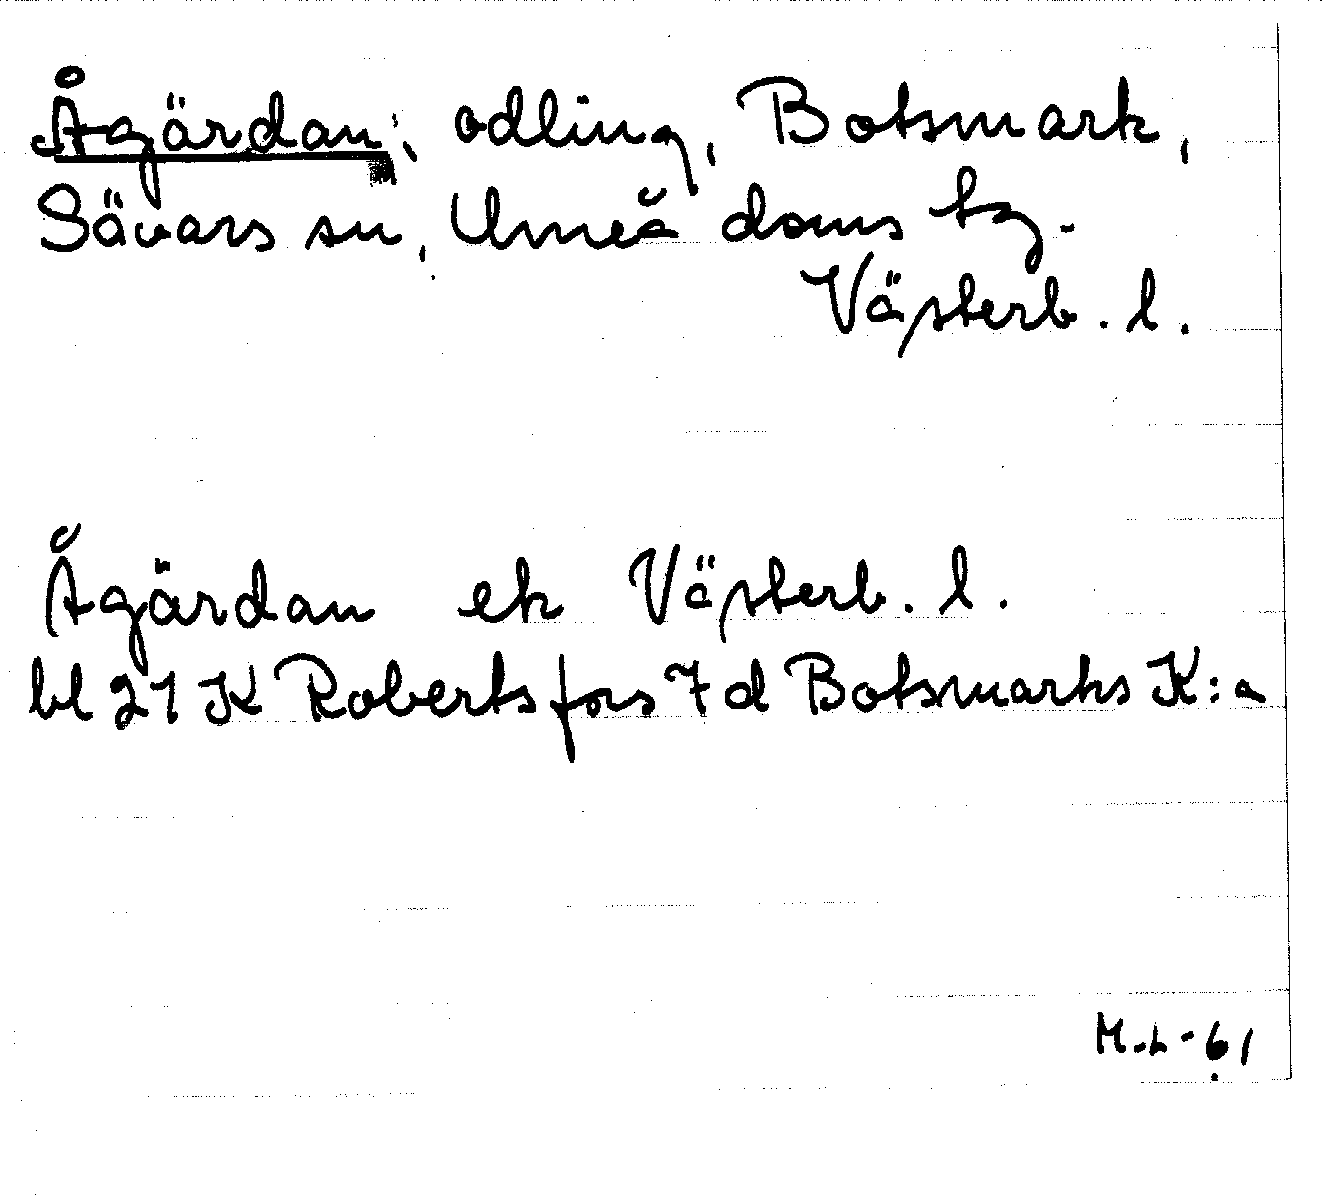 Ågärdan, odling, Botsmark,
Sävars sn, Umeå doms tg.
Västerb. l.
Ågärdan ek Västerb. l.
bl 21 K Robertsfors 7 d Botsmarks K:a
M.L-61